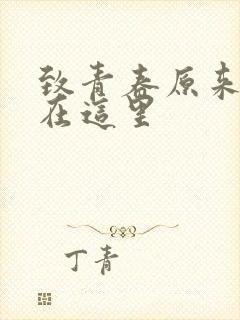 致青春原来
在這里
丁青